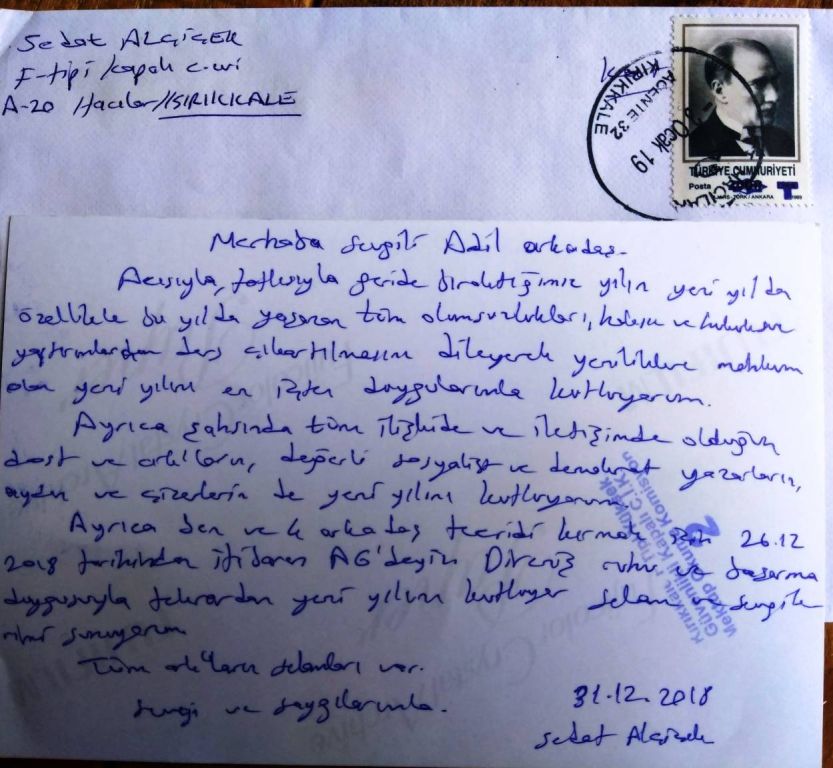 Sedat ALÇİÇEK
F-tipi kapalı c.evi
A-20 Hacılar/KIRIKKALE
KIRIKKALE
ACENTE 32
Ocak 19
TÜRKİYE CUMHURİYETİ
Posta
T
Merhaba Sevgili Adil arkadaş.
Acısıyla, tatlısıyla geride bıraktığımız yılın yeni yıl da
özellikle bu yıl da yaşanan tüm olumsuzlukları, ve
yaptırımlardan ders çıkartılmasını dileyerek yeniliklere
olan yeni yılını en içten duygularımla kutluyorum.
Ayrıca şahsında tüm ilişkide ve iletişimde olduğun
dost ve ark'ların, değerli sosyalist ve demokrat yazarların,
aydın ve çizerlerin de yeni yılını kutluyorum
Ayrıca ben ve arkadaş tecridi kırmak için 26.12
2018 tarihinden itibaren AG'deyiz Direniş ruhu ve başarma
duygusuyla tekrardan yeni yılını kutluyor selam ve sevgile
rimi sunuyorum
Tüm ark'ların selamları var.
Sevgi ve saygılarımla.
31.12.2018
Sedat Alçiçek
Kırıkkale F Tipi Yüksek
Güvenlikli Kapalı C.İ.K
Mektup Okuma Komisyon
2